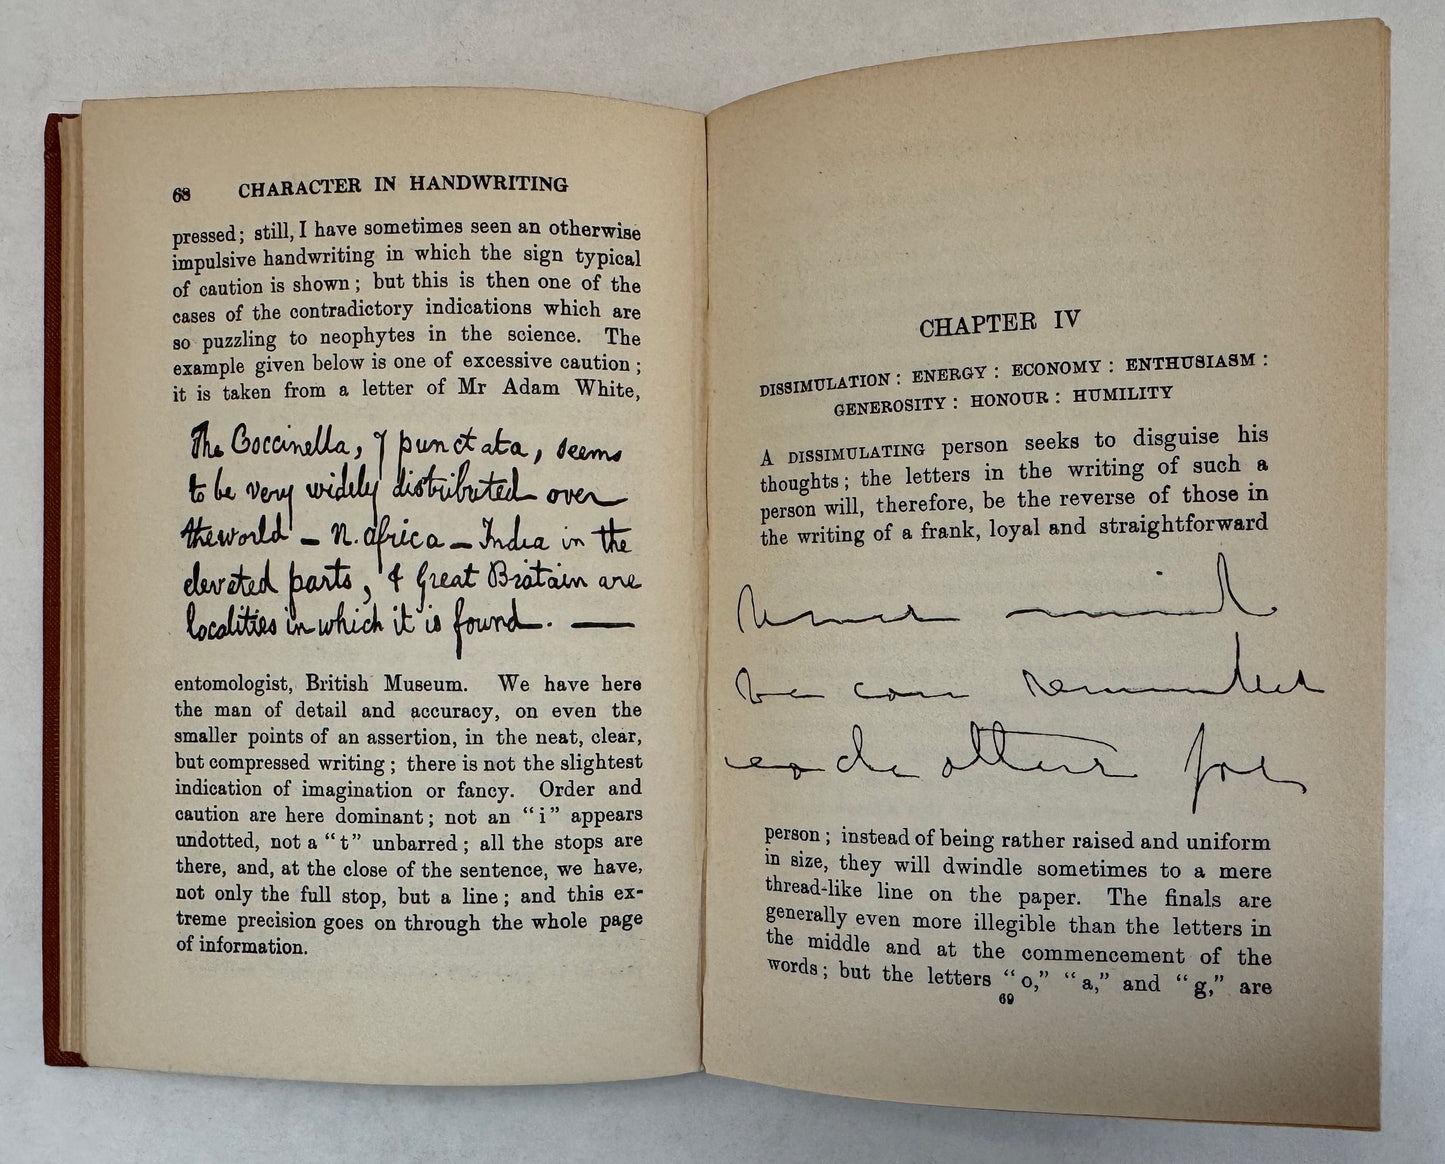 68 CHARACTER IN HANDWRITING
pressed; still, I have sometimes seen an otherwise
impulsive handwriting in which the sign typical
of caution is shown; but this is then one of the
cases of the contradictory indications which are
so puzzling to neophytes in the science. The
example given below is one of excessive caution;
it is taken from a letter of Mr Adam White,
The Coccinella, 7 punctata, seems
to be very widely distributed over
the world — N. Africa — India in the
elevated parts, & Great Britain are
localities in which it is found. —
entomologist, British Museum. We have here
the man of detail and accuracy, on even the
smaller points of an assertion, in the neat, clear,
but compressed writing; there is not the slightest
indication of imagination or fancy. Order and
caution are here dominant; not an "i" appears
undotted, not a "t" unbarred; all the stops are
there, and, at the close of the sentence, we have,
not only the full stop, but a line; and this ex-
treme precision goes on through the whole page
of information.
CHAPTER IV
DISSIMULATION: ENERGY: ECONOMY: ENTHUSIASM:
GENEROSITY: HONOUR: HUMILITY
A DISSIMULATING person seeks to disguise his
thoughts; the letters in the writing of such a
person will, therefore, be the reverse of those in
the writing of a frank, loyal and straightforward
mind
be can
other for
person; instead of being rather raised and uniform
in size, they will dwindle sometimes to a mere
thread-like line on the paper. The finals are
generally even more illegible than the letters in
the middle and at the commencement of the
words; but the letters "o," "a," and "g," are
69